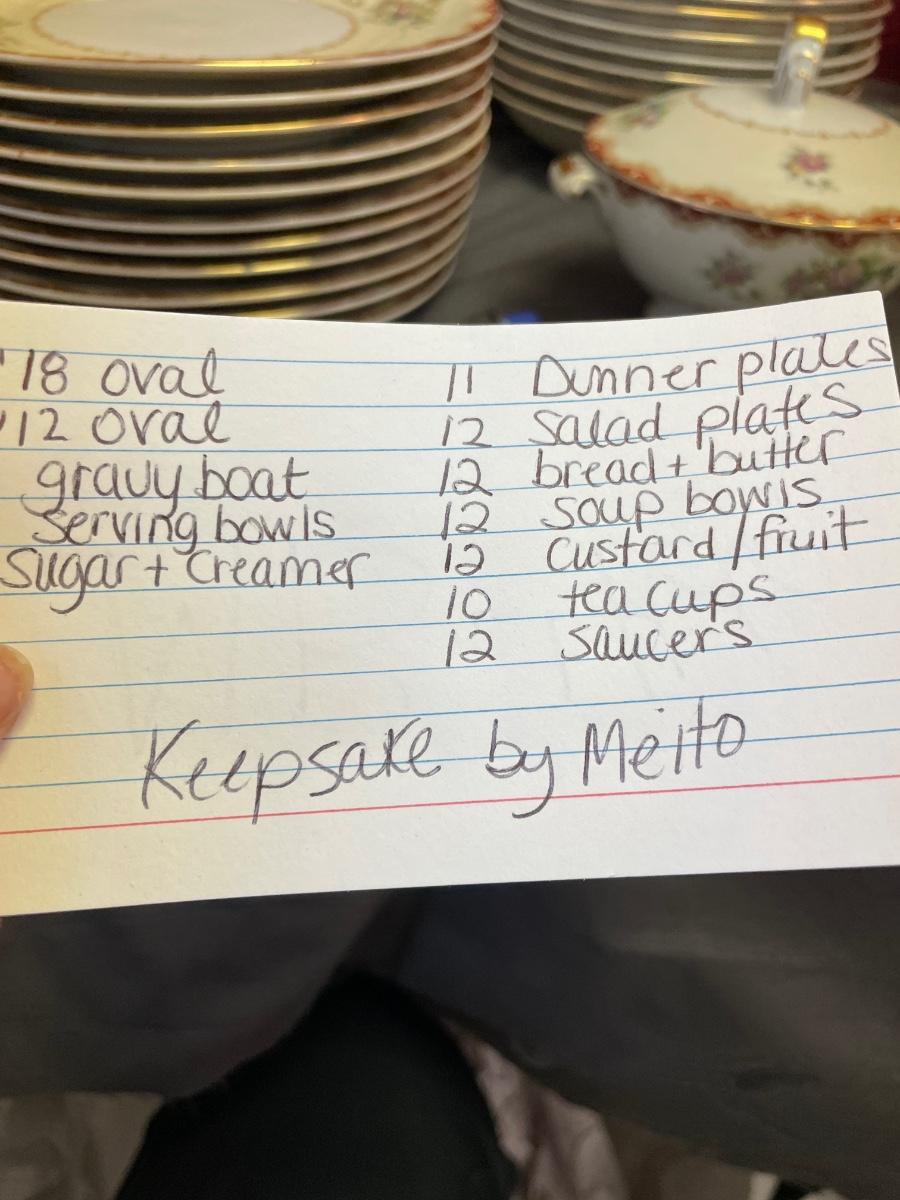 '18 oval
'12 oval
gravy boat
Serving bowls
Sugar + Creamer
11 Dinner plates
12 Salad plates
12 bread + butter
12 soup bowls
12 Custard / fruit
10 tea cups
12 saucers
Keepsake by Meito